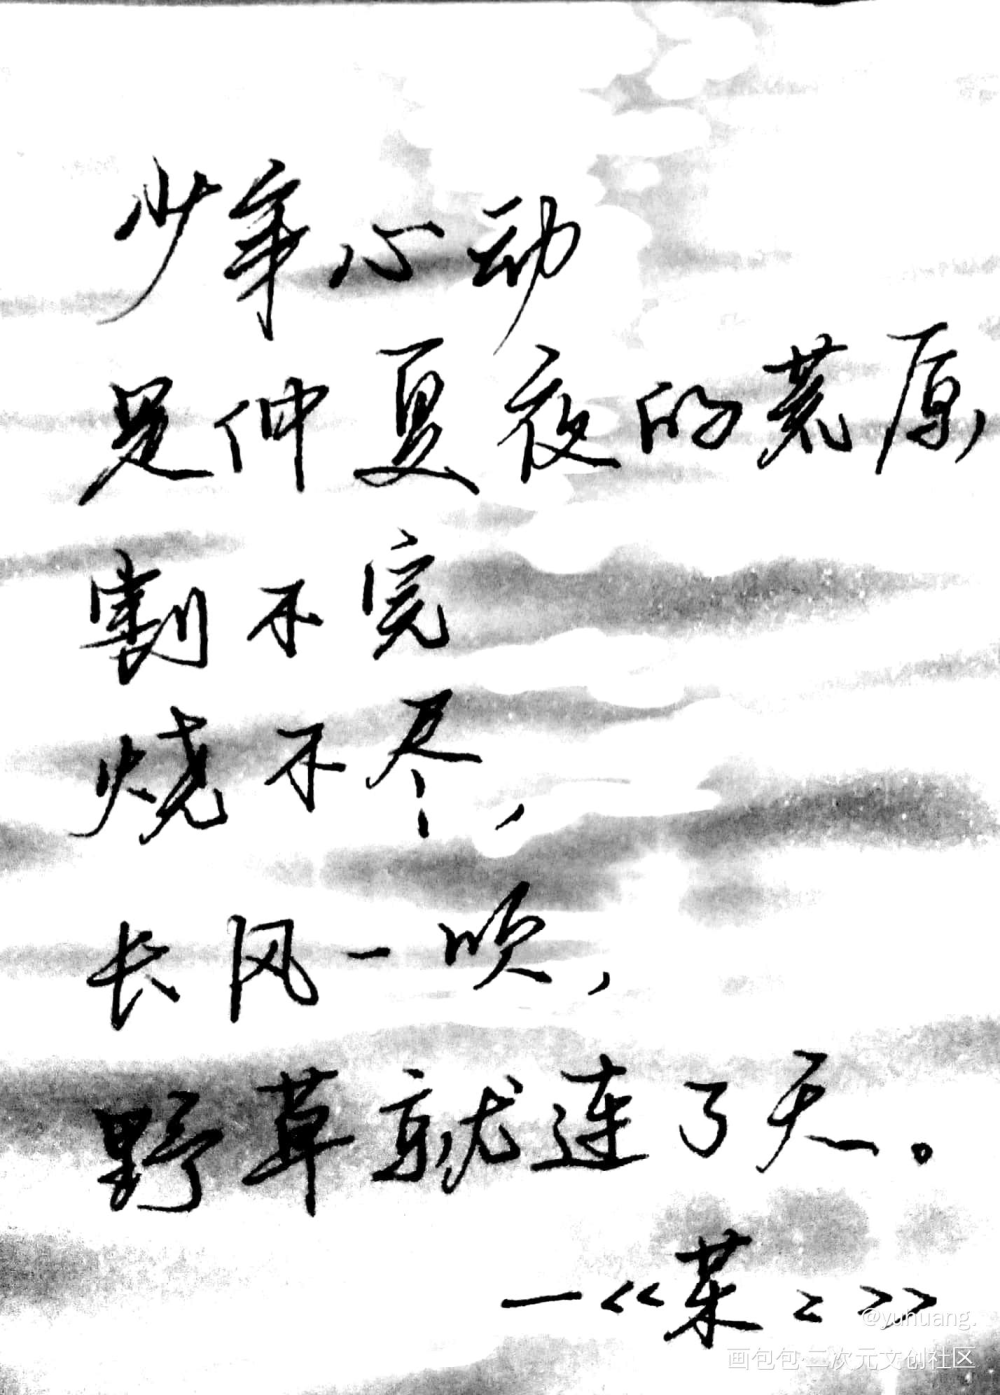 少年心动
是仲夏夜的荒原,
割不完
烧不尽,
长风一吹,
野草就连了天。
—<<某二>>
@yuhuang.
画包包·二次元文创社区